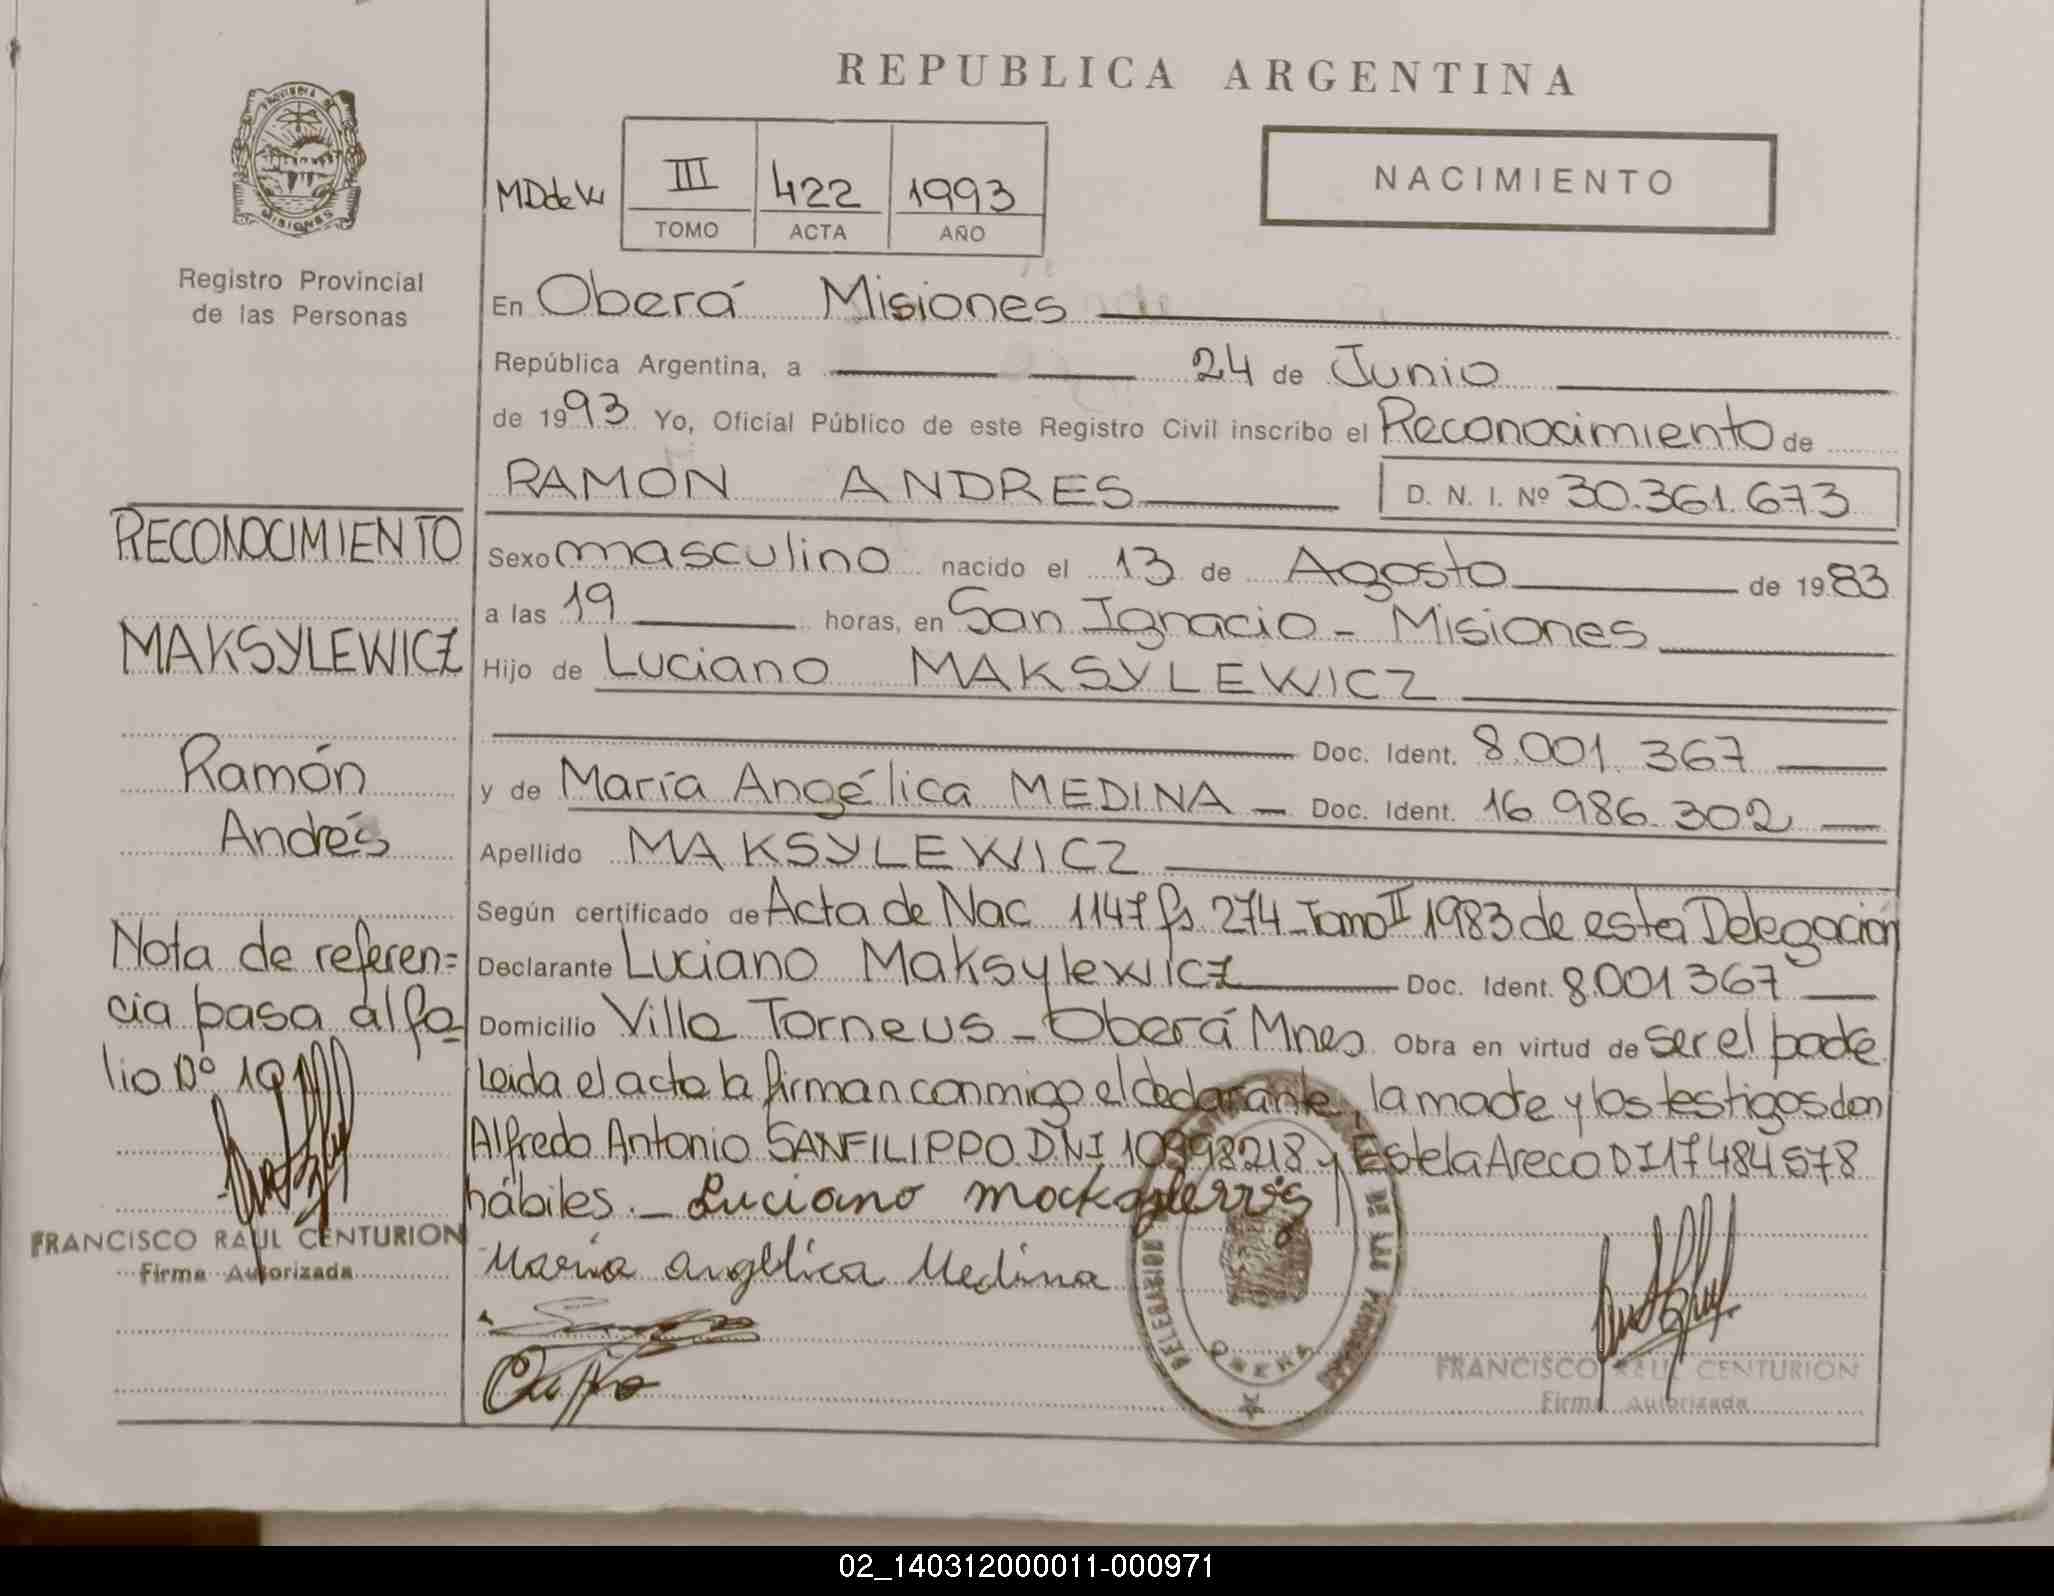 REPUBLICA ARGENTINA
PROVINCIA DE
MISIONES
Registro Provincial
de las Personas
MDdeW
III
422
1993
TOMO
ACTA
AÑO
NACIMIENTO
En Oberá Misiones
República Argentina, a 24 de Junio
de 1993 Yo, Oficial Público de este Registro Civil inscribo el Reconocimiento de
RAMON ANDRES D. N. I. Nº 30.361.673
Sexo masculino nacido el 13 de Agosto de 1983
a las 19 horas, en San Ignacio - Misiones
Hijo de Luciano MAKSYLEWICZ
Doc. Ident. 8.001.367
y de María Angélica MEDINA - Doc. Ident. 16.986.302
Apellido MAKSYLEWICZ
Según certificado de Acta de Nac 1147 fs 274 Tomo II 1983 de esta Delegación
Declarante Luciano Maksylewicz Doc. Ident. 8.001 367
Domicilio Villa Torneus - Oberá Mnes Obra en virtud de ser el padre
Leida el acta la firman conmigo el declarante, la madre y los testigos don
Alfredo Antonio SANFILIPPO DNI 10998218 y Estela Areco DI 17484578
hábiles. - Luciano
María angélica Medina
RECONOCIMIENTO
MAKSYLEWICZ
Ramón
Andrés
Nota de referen=
cia pasa al fo-
lio Nº 191
FRANCISCO RAUL CENTURION
Firma Autorizada
DE LAS PERSONAS
OBERA
FRANCISCO RAUL CENTURION
Firma Autorizada
02_140312000011-000971